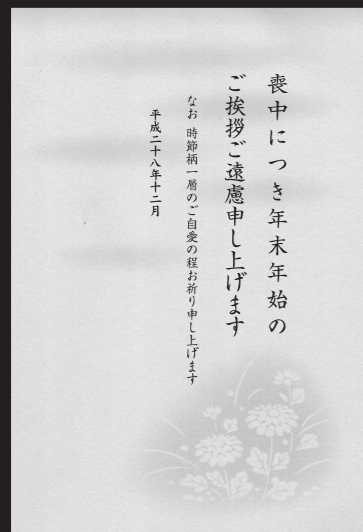 喪中につき年末年始の
ご挨拶ご遠慮申し上げます
なお 時節柄一層のご自愛の程お祈り申し上げます
平成二十八年十二月